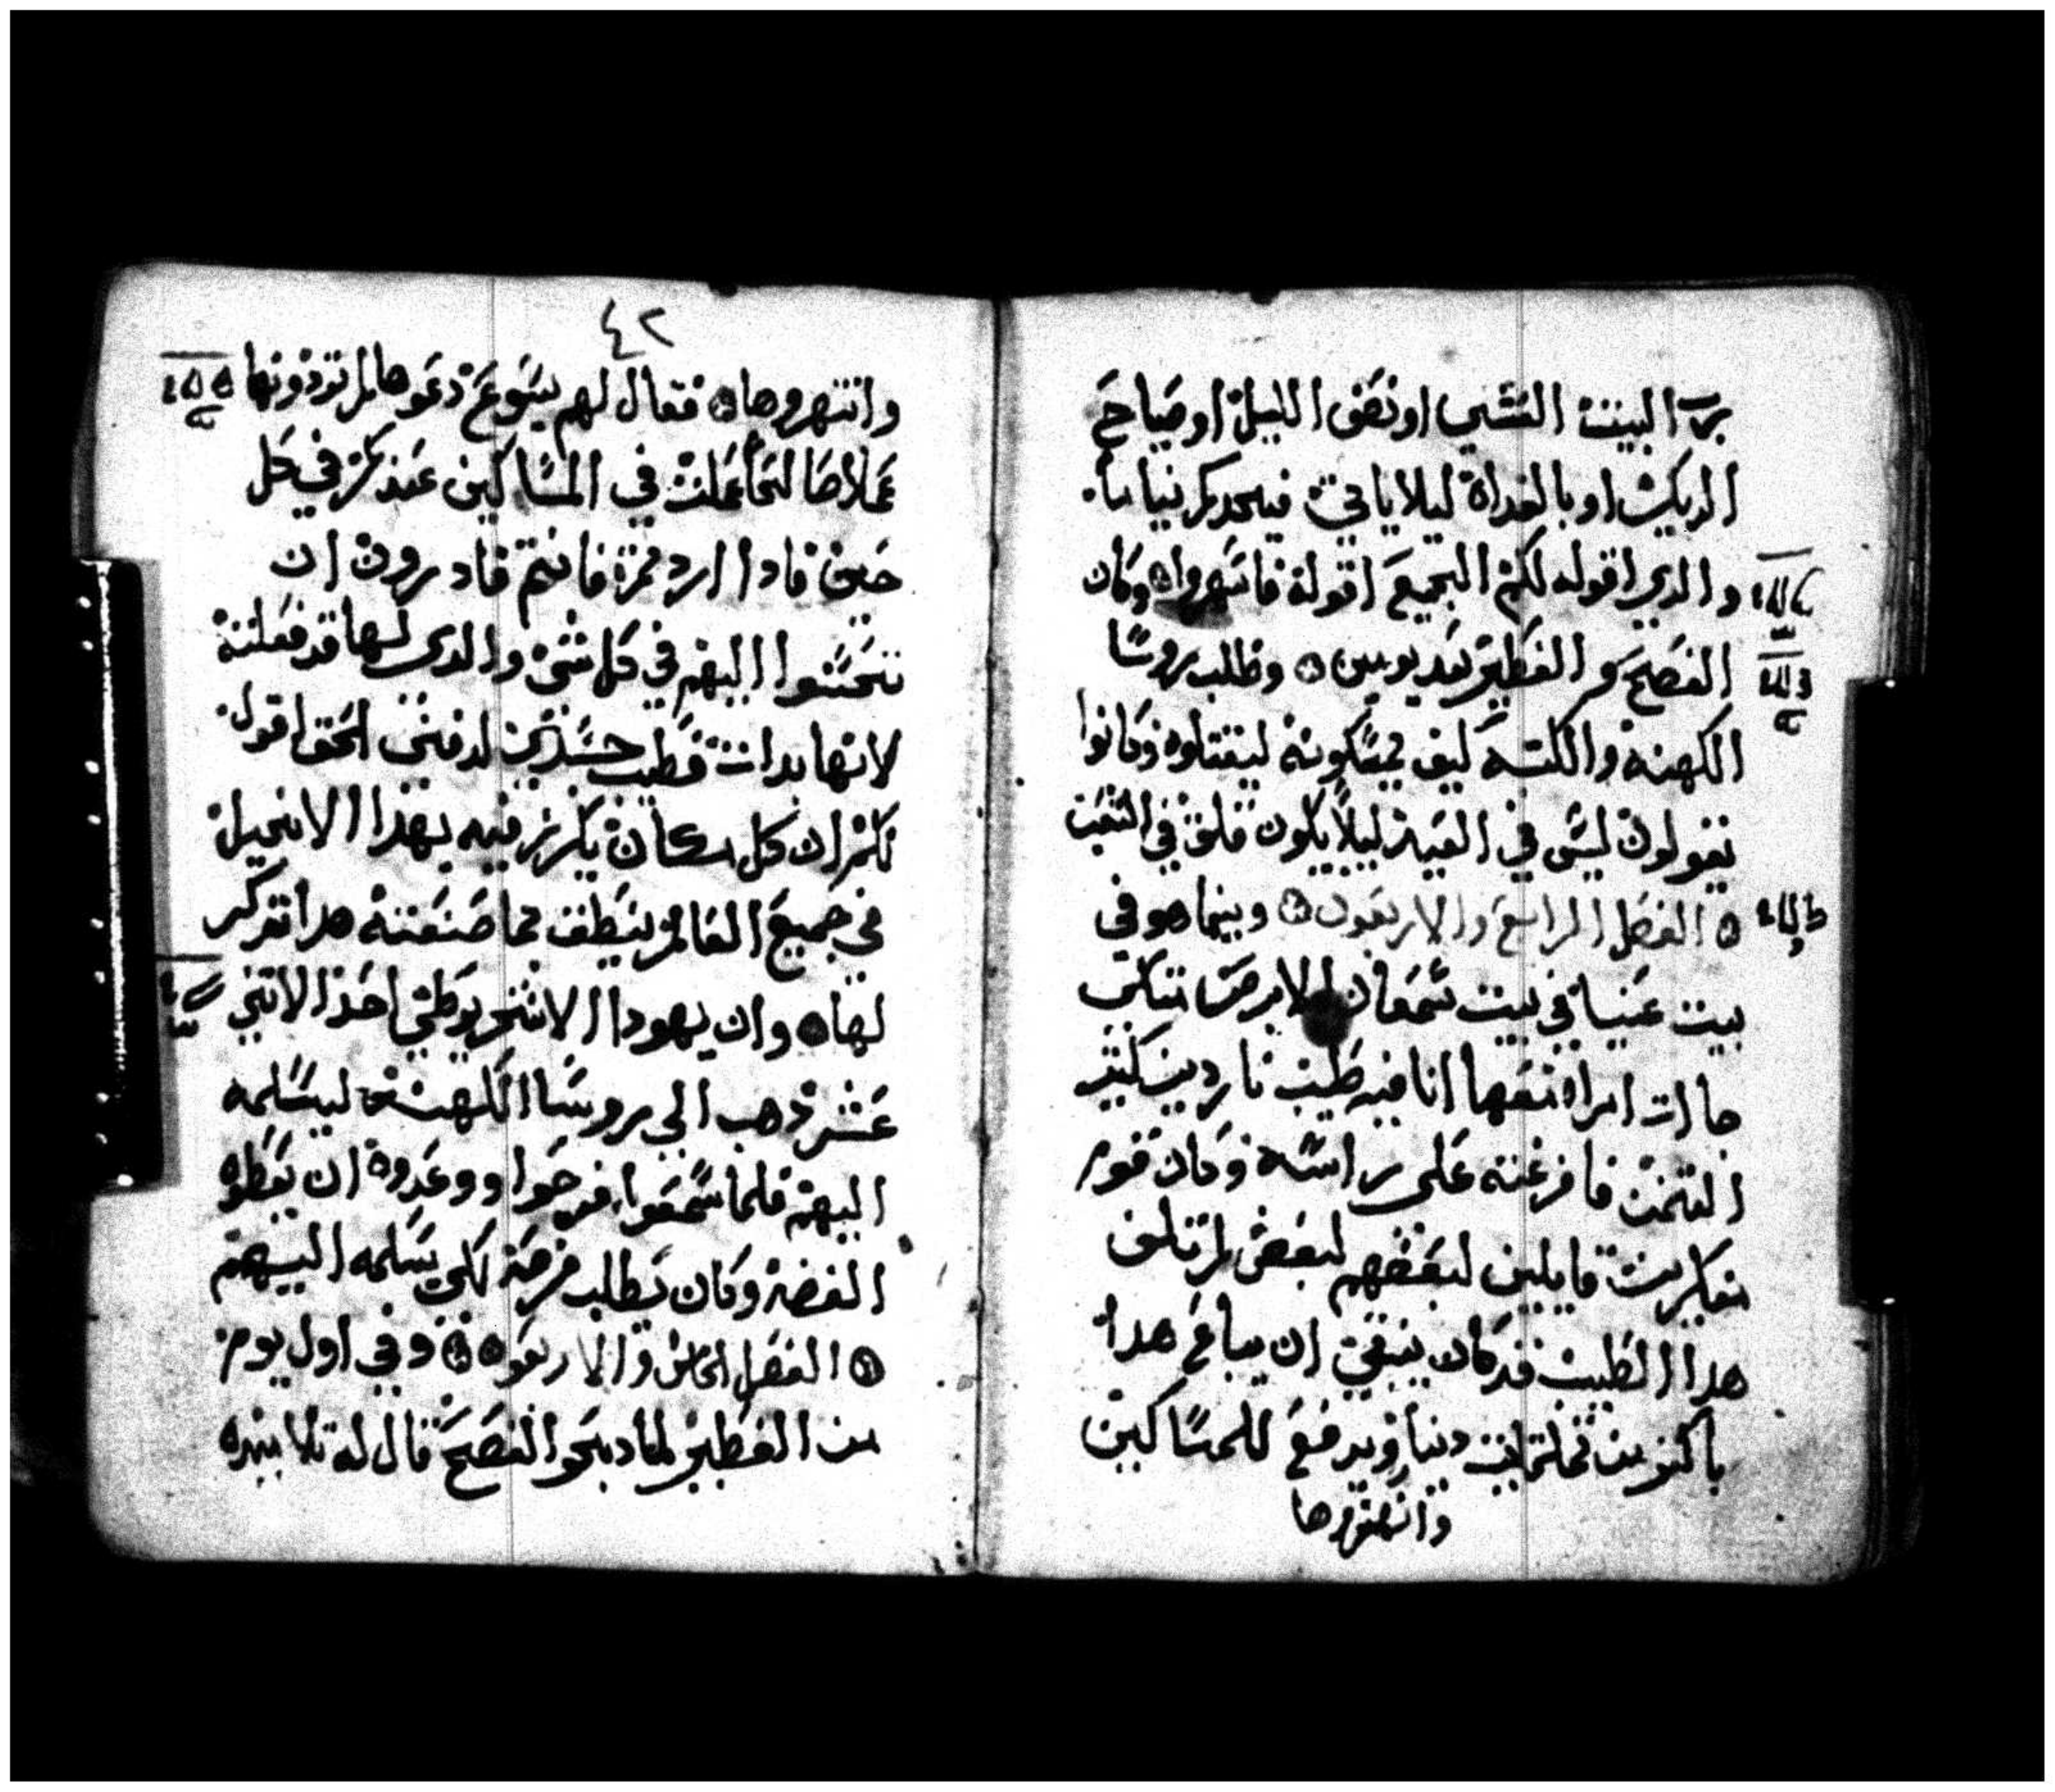 رب البيت العشي او نصف الليل او صياح
الديك او بالغداة ليلا ياتي فيجدكم نياما
والدي اقوله لكم الجميع اقولة فاسهروا وكان
الفصح والفطير بعد يومين وطلب روسا
الكهنة والكتبه كيف يمسكونه ليقتلوه وكانوا
يقولون ليس في العيد ليلا يكون قلق في الشعب
الفصل الرابع والاربعون وبينما هو في
بيت عنيا في بيت سمعان الابرص متكي
جاات امراه معها انا فيه طيب ناردين كثير
الثمن فافرغته على راسه وكان قوم
متفكرين قايلين لبعضهم لبعض لم تلف
هدا الطيب قد كان ينبغي ان يباع هدا
باكثر من تلتماية دينار ويدفع للمساكين
وانتهروها
٤٢
وانتهروها فقال لهم يسوع دعوها لم تودونها
عملا صالحا عملت في المساكين عندكم في كل
حين فادا اردتم فانتم قادرون ان
تحسنوا اليهم في كل شي والدي لها قد فعلته
لانها بدات فطيب جسدي لدفني الحق اقول
لكم ان كل مكان يكرز فيه بهذا الانجيل
في جميع العالم ينطق بما صنعته هدا تدكر
لها وان يهودا الاسخريوطي احد الاتني
عشر دهب الي روسا الكهنة ليسلمه
اليهم فلما سمعوا فرحوا ووعدوه ان يعطوه
الفضة وكان يطلب فرصة لكي يسلمه اليهم
الفصل الخامس والاربعون وفي اول يوم
من الفطير لما دبحو الفصح قال له تلاميده